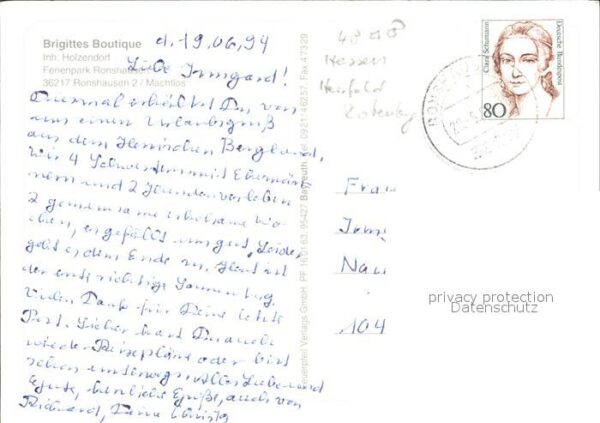 Brigittes Boutique
Inh. Holzendorf
Ferienpark Ronshausen
36217 Ronshausen 2 / Machtlos
d. 19.06.94
Liebe Irmgard!
Diesmal erhältst Du von
uns einen Urlaubsgruß
aus dem Hessischen Bergland,
Wir 4 Schwestern mit Ehemän
nern und 2 Freunden verleben
2 gemeinsame erholsame Wo
chen, es gefällt uns gut, Leider
geht es dem Ende zu, Heut ist
der erste richtige Sonnentag.
Vielen Dank für Deine letzte
Post. Sicher hast Du auch
wieder Reisepläne oder bist
schon unterwegs. Alles Liebe und
Gute, herzliche Grüße, auch von
Richard, Deine Christa
Feuerpfeil Verlags GmbH, PF 160163, 95427 Bayreuth, Tel. 0921/46257, Fax 47329
Hessen
Hersfeld
Rotenburg
Clara Schumann
Deutsche Bundespost
80
Frau
104
privacy protection
Datenschutz